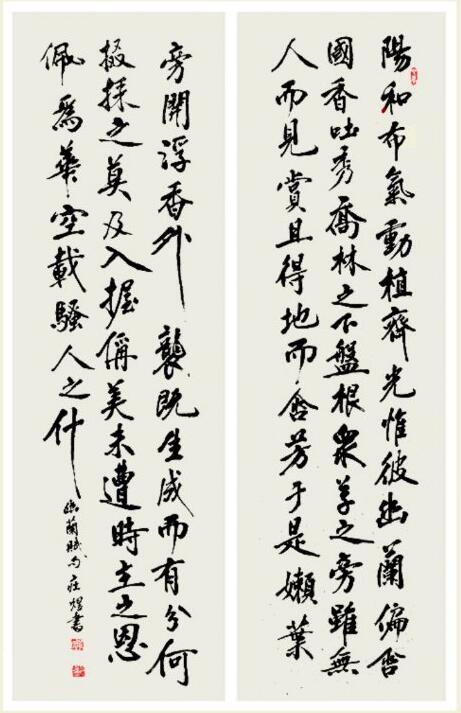 陽和布氣動植齊光惟彼幽蘭偏含
國香吐秀喬林之下盤根衆草之旁雖無
人而見賞且得地而含芳于是嬾葉
旁開浮香外襲既生成而有分何
掇採之莫及入握偁美未遭時主之恩
佩爲華空載騷人之什
幽蘭賦句 庄煜書